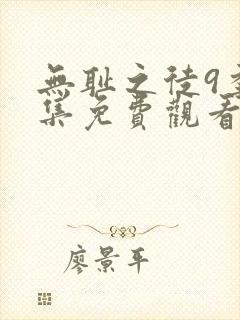 無耻之徒9
集免費觀看
廖景平